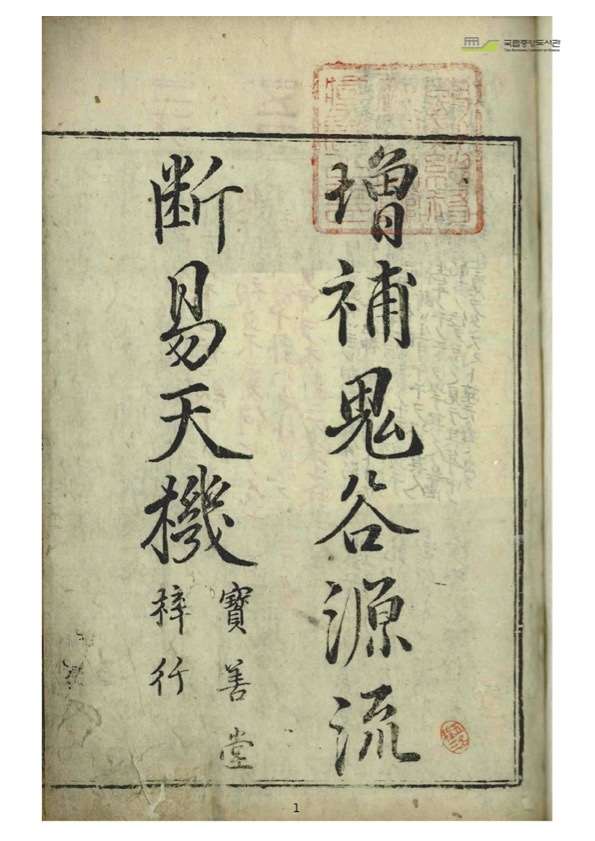 국립중앙도서관
增補鬼谷源流
断易天機
寶善堂
梓行
1